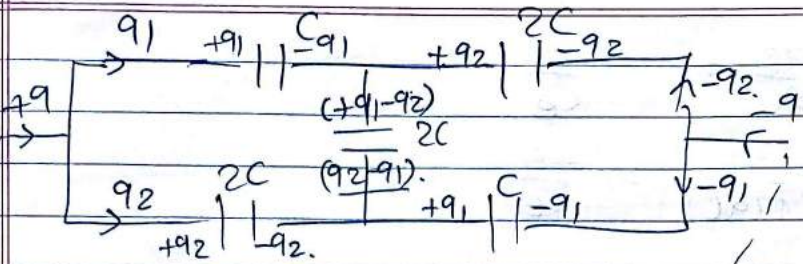 q1 +q1 C -q1 +q2 2C -q2
+q (+q1-q2) 2C -q2. -q
q2 2C (q2-q1). +q1 C -q1 -q1
+q2 -q2.